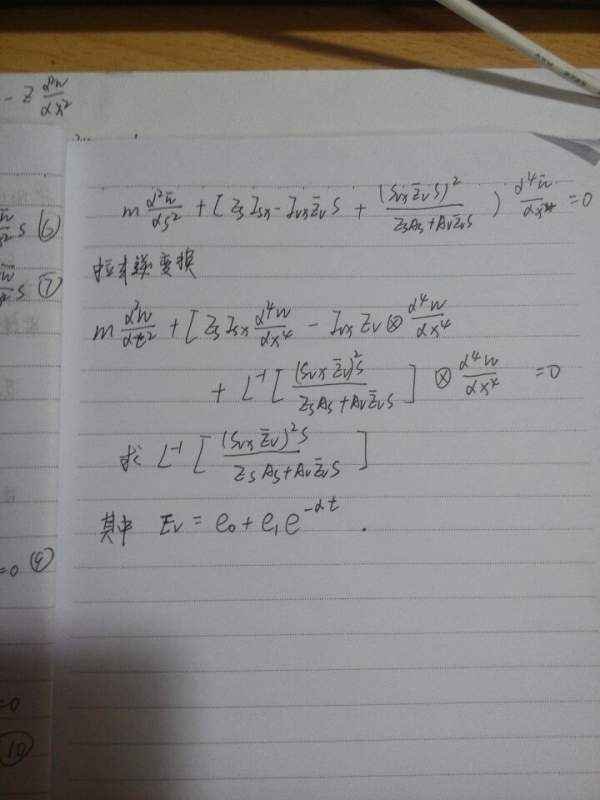 - z d²w/dx²
m d²w̄/ds² + [ZsIsx - IvxZ̄vS + (SvxZ̄vS)²/(ZsAs + AvZ̄vS)) d⁴w̄/dx⁴ = 0
s ⑥
拉式逆变换
s ⑦
m d²w/dt² + [ZsIsx d⁴w/dx⁴ - IvxZv⊗ d⁴w/dx⁴
+ L⁻¹[(SvxZ̄v)²S/(ZsAs + AvZ̄vS)] ⊗ d⁴w/dx⁴ = 0
求 L⁻¹[(SvxZ̄v)²S/(ZsAs + AvZ̄vS)]
其中 Ev = e₀ + e₁e^{-αt} .
=0 ⑨
=0
⑩